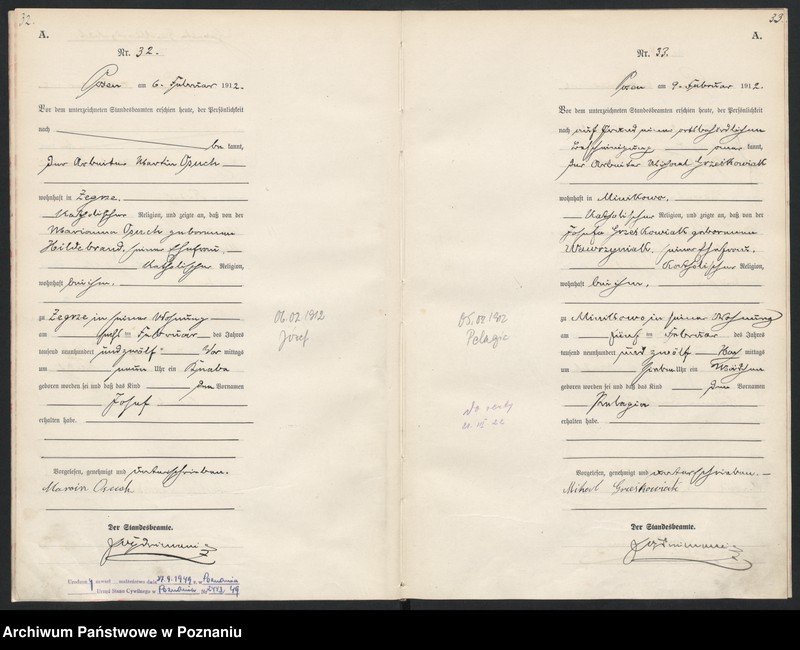 32.
A.
Nr. 32.
Posen am 6. Februar 1912.
Vor dem unterzeichneten Standesbeamten erschien heute, der Persönlichkeit
nach
be kannt,
der Arbeiter Martin
wohnhaft in Zegrze,
katholischer Religion, und zeigte an, daß von der
Marianna geborenen
Hildebrand, seiner Ehefrau,
katholischer Religion,
wohnhaft bei ihm,
zu Zegrze in seiner Wohnung
am sechsten Februar des Jahres
tausend neunhundert und zwölf Vor mittags
um neun Uhr ein Knabe
geboren worden sei und daß das Kind den Vornamen
Josef
erhalten habe.
Vorgelesen, genehmigt und unterschrieben.
Der Standesbeamte.
27.9.1949 r. w Poznaniu
Urząd Stanu Cywilnego w Poznaniu
06.02.1912
Józef
33.
A.
Nr. 33.
Posen am 9. Februar 1912.
Vor dem unterzeichneten Standesbeamten erschien heute, der Persönlichkeit
nach auf Grund einer ortsbehördlichen
Bescheinigung aner kannt,
der Arbeiter Michael Grześkowiak
wohnhaft in Minikowo,
katholischer Religion, und zeigte an, daß von der
Josefa Grześkowiak geborenen
Wawrzyniak, seiner Ehefrau,
katholischer Religion,
wohnhaft bei ihm,
zu Minikowo in seiner Wohnung
am fünften Februar des Jahres
tausend neunhundert und zwölf Vor mittags
um sieben Uhr ein Mädchen
geboren worden sei und daß das Kind den Vornamen
Pelagia
erhalten habe.
Vorgelesen, genehmigt und unterschrieben.
Grześkowiak
Der Standesbeamte.
Pelagia
Archiwum Państwowe w Poznaniu